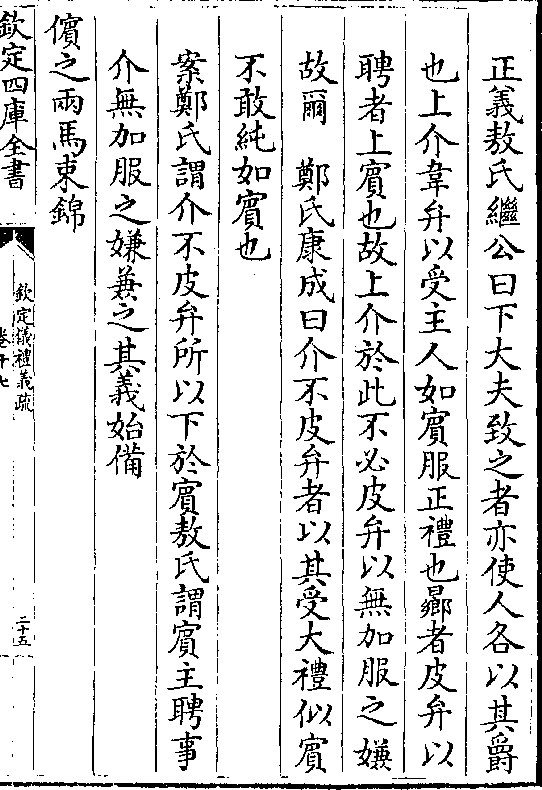 正義敖氏繼公曰下大夫致之者亦使人各以其爵
也上介韋弁以受主人如賓服正禮也曏者皮弁以
聘者上賓也故上介於此不必皮弁以無加服之嫌
故爾　鄭氏康成曰介不皮弁者以其受大禮似賓
不敢純如賓也
案鄭氏謂介不皮弁所以下於賓敖氏謂賓主聘事
介無加服之嫌兼之其義始備
儐之兩馬束錦
欽定四庫全書
欽定儀禮義疏
卷十七
二十五